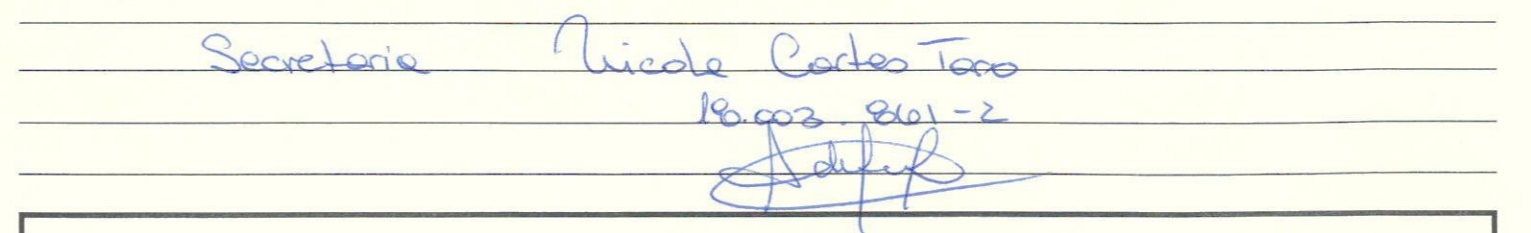 Secretaria Nicole Cortes Toro
18.003.861-2